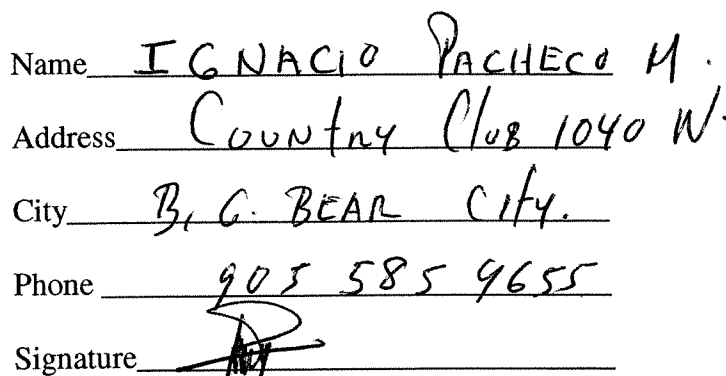 Name IGNACIO PACHECO M.
Address Country Club 1040 W.
City B, G. BEAR City.
Phone 905 585 9655
Signature